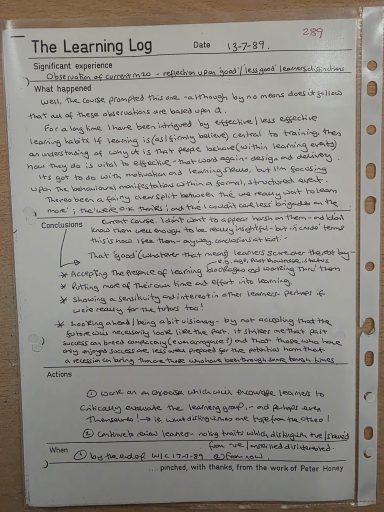 289
The Learning Log Date 13-7-89.
Significant experience
Observation of current m20 - reflection upon 'good'/'less good' learners distinctions
What happened
Well, the course prompted this one - although by no means does it follow
that all of these observations are based upon it.
For a long time I have been intrigued by effective/less effective
learning habits. If learning is (as I firmly believe) central to training, then
an understanding of why it is that people behave (within learning events)
how they do is vital to effective - that word again - design and delivery.
It's got to do with motivation and learning skills, but I'm focusing
upon the behavioural manifestations within a formal, structured event.
There's been a fairly clear split between the 'we really want to learn
more'; the 'we're O.K. thanks', and the 'I couldn't care less' brigades on the
current course. I don't want to appear harsh on them - and I don't
know them well enough to be really insightful - but in crude terms
this is how I see them - anyway, conclusions at last -
Conclusions
That 'good' (whatever that means) learners score over the rest by -
e.g. age, past business, status
* Accepting the presence of learning blockages and working thro' them
* Putting more of their own time and effort into learning.
* Showing a sensitivity and interest in other learners - perhaps if
were ready for the tutors too!
* Looking ahead/being a bit visionary - by not accepting that the
future will necessarily look like the past. It strikes me that past
success can breed complacency (even arrogance!) and that those who have
only enjoyed success are less well prepared for the potential harm that
a recession can bring than are those who have been through some tough times
Actions
① Work on an exercise which will encourage learners to
critically evaluate the learning group, - and perhaps even
themselves! → i.e. what distinguishes one type from the other!
② Continue to review learners - noting traits which distinguish +ve/
from -ve/ disinterested.
When ① by the end of W/C 17-7-89 ② from now.
.... pinched, with thanks, from the work of Peter Honey